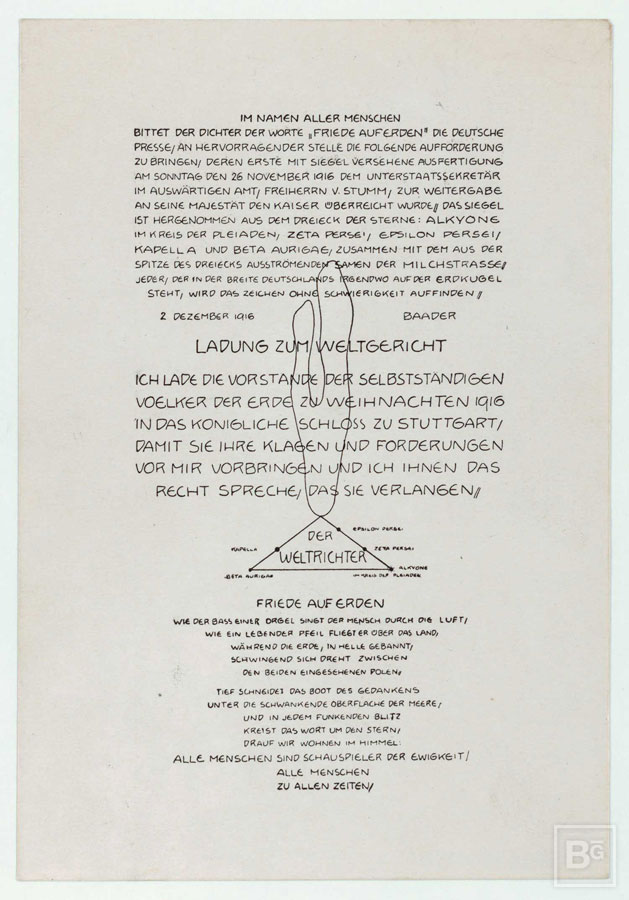 IM NAMEN ALLER MENSCHEN
BITTET DER DICHTER DER WORTE „FRIEDE AUF ERDEN" DIE DEUTSCHE
PRESSE/ AN HERVORRAGENDER STELLE DIE FOLGENDE AUFFORDERUNG
ZU BRINGEN/ DEREN ERSTE MIT SIEGEL VERSEHENE AUSFERTIGUNG
AM SONNTAG DEN 26 NOVEMBER 1916 DEM UNTERSTAATSSEKRETÄR
IM AUSWÄRTIGEN AMT/ FREIHERRN V. STUMM/ ZUR WEITERGABE
AN SEINE MAJESTÄT DEN KAISER ÜBERREICHT WURDE// DAS SIEGEL
IST HERGENOMMEN AUS DEM DREIECK DER STERNE: ALKYONE
IM KREIS DER PLEIADEN/ ZETA PERSEI/ EPSILON PERSEI/
KAPELLA UND BETA AURIGAE/ ZUSAMMEN MIT DEM AUS DER
SPITZE DES DREIECKS AUSSTRÖMENDEN SAMEN DER MILCHSTRASSE//
JEDER/ DER IN DER BREITE DEUTSCHLANDS IRGENDWO AUF DER ERDKUGEL
STEHT/ WIRD DAS ZEICHEN OHNE SCHWIERIGKEIT AUFFINDEN//
2 DEZEMBER 1916 BAADER
LADUNG ZUM WELTGERICHT
ICH LADE DIE VORSTANDE DER SELBSTSTÄNDIGEN
VOELKER DER ERDE ZU WEIHNACHTEN 1916
IN DAS KONIGLICHE SCHLOSS ZU STUTTGART/
DAMIT SIE IHRE KLAGEN UND FORDERUNGEN
VOR MIR VORBRINGEN UND ICH IHNEN DAS
RECHT SPRECHE/ DAS SIE VERLANGEN//
EPSILON PERSEI
DER
KAPELLA ZETA PERSEI
WELTRICHTER
ALKYONE
BETA AURIGAE IM KREIS DER PLEIADEN
FRIEDE AUF ERDEN
WIE DER BASS EINER ORGEL SINGT DER MENSCH DURCH DIE LUFT/
WIE EIN LEBENDER PFEIL FLIEGT ER ÜBER DAS LAND/
WÄHREND DIE ERDE/ IN HELLE GEBANNT/
SCHWINGEND SICH DREHT ZWISCHEN
DEN BEIDEN EINGESEHENEN POLEN//
TIEF SCHNEIDET DAS BOOT DES GEDANKENS
UNTER DIE SCHWANKENDE OBERFLACHE DER MEERE/
UND IN JEDEM FUNKENDEN BLITZ
KREIST DAS WORT UM DEN STERN/
DRAUF WIR WOHNEN IM HIMMEL:
ALLE MENSCHEN SIND SCHAUSPIELER DER EWIGKEIT/
ALLE MENSCHEN
ZU ALLEN ZEITEN//
BG